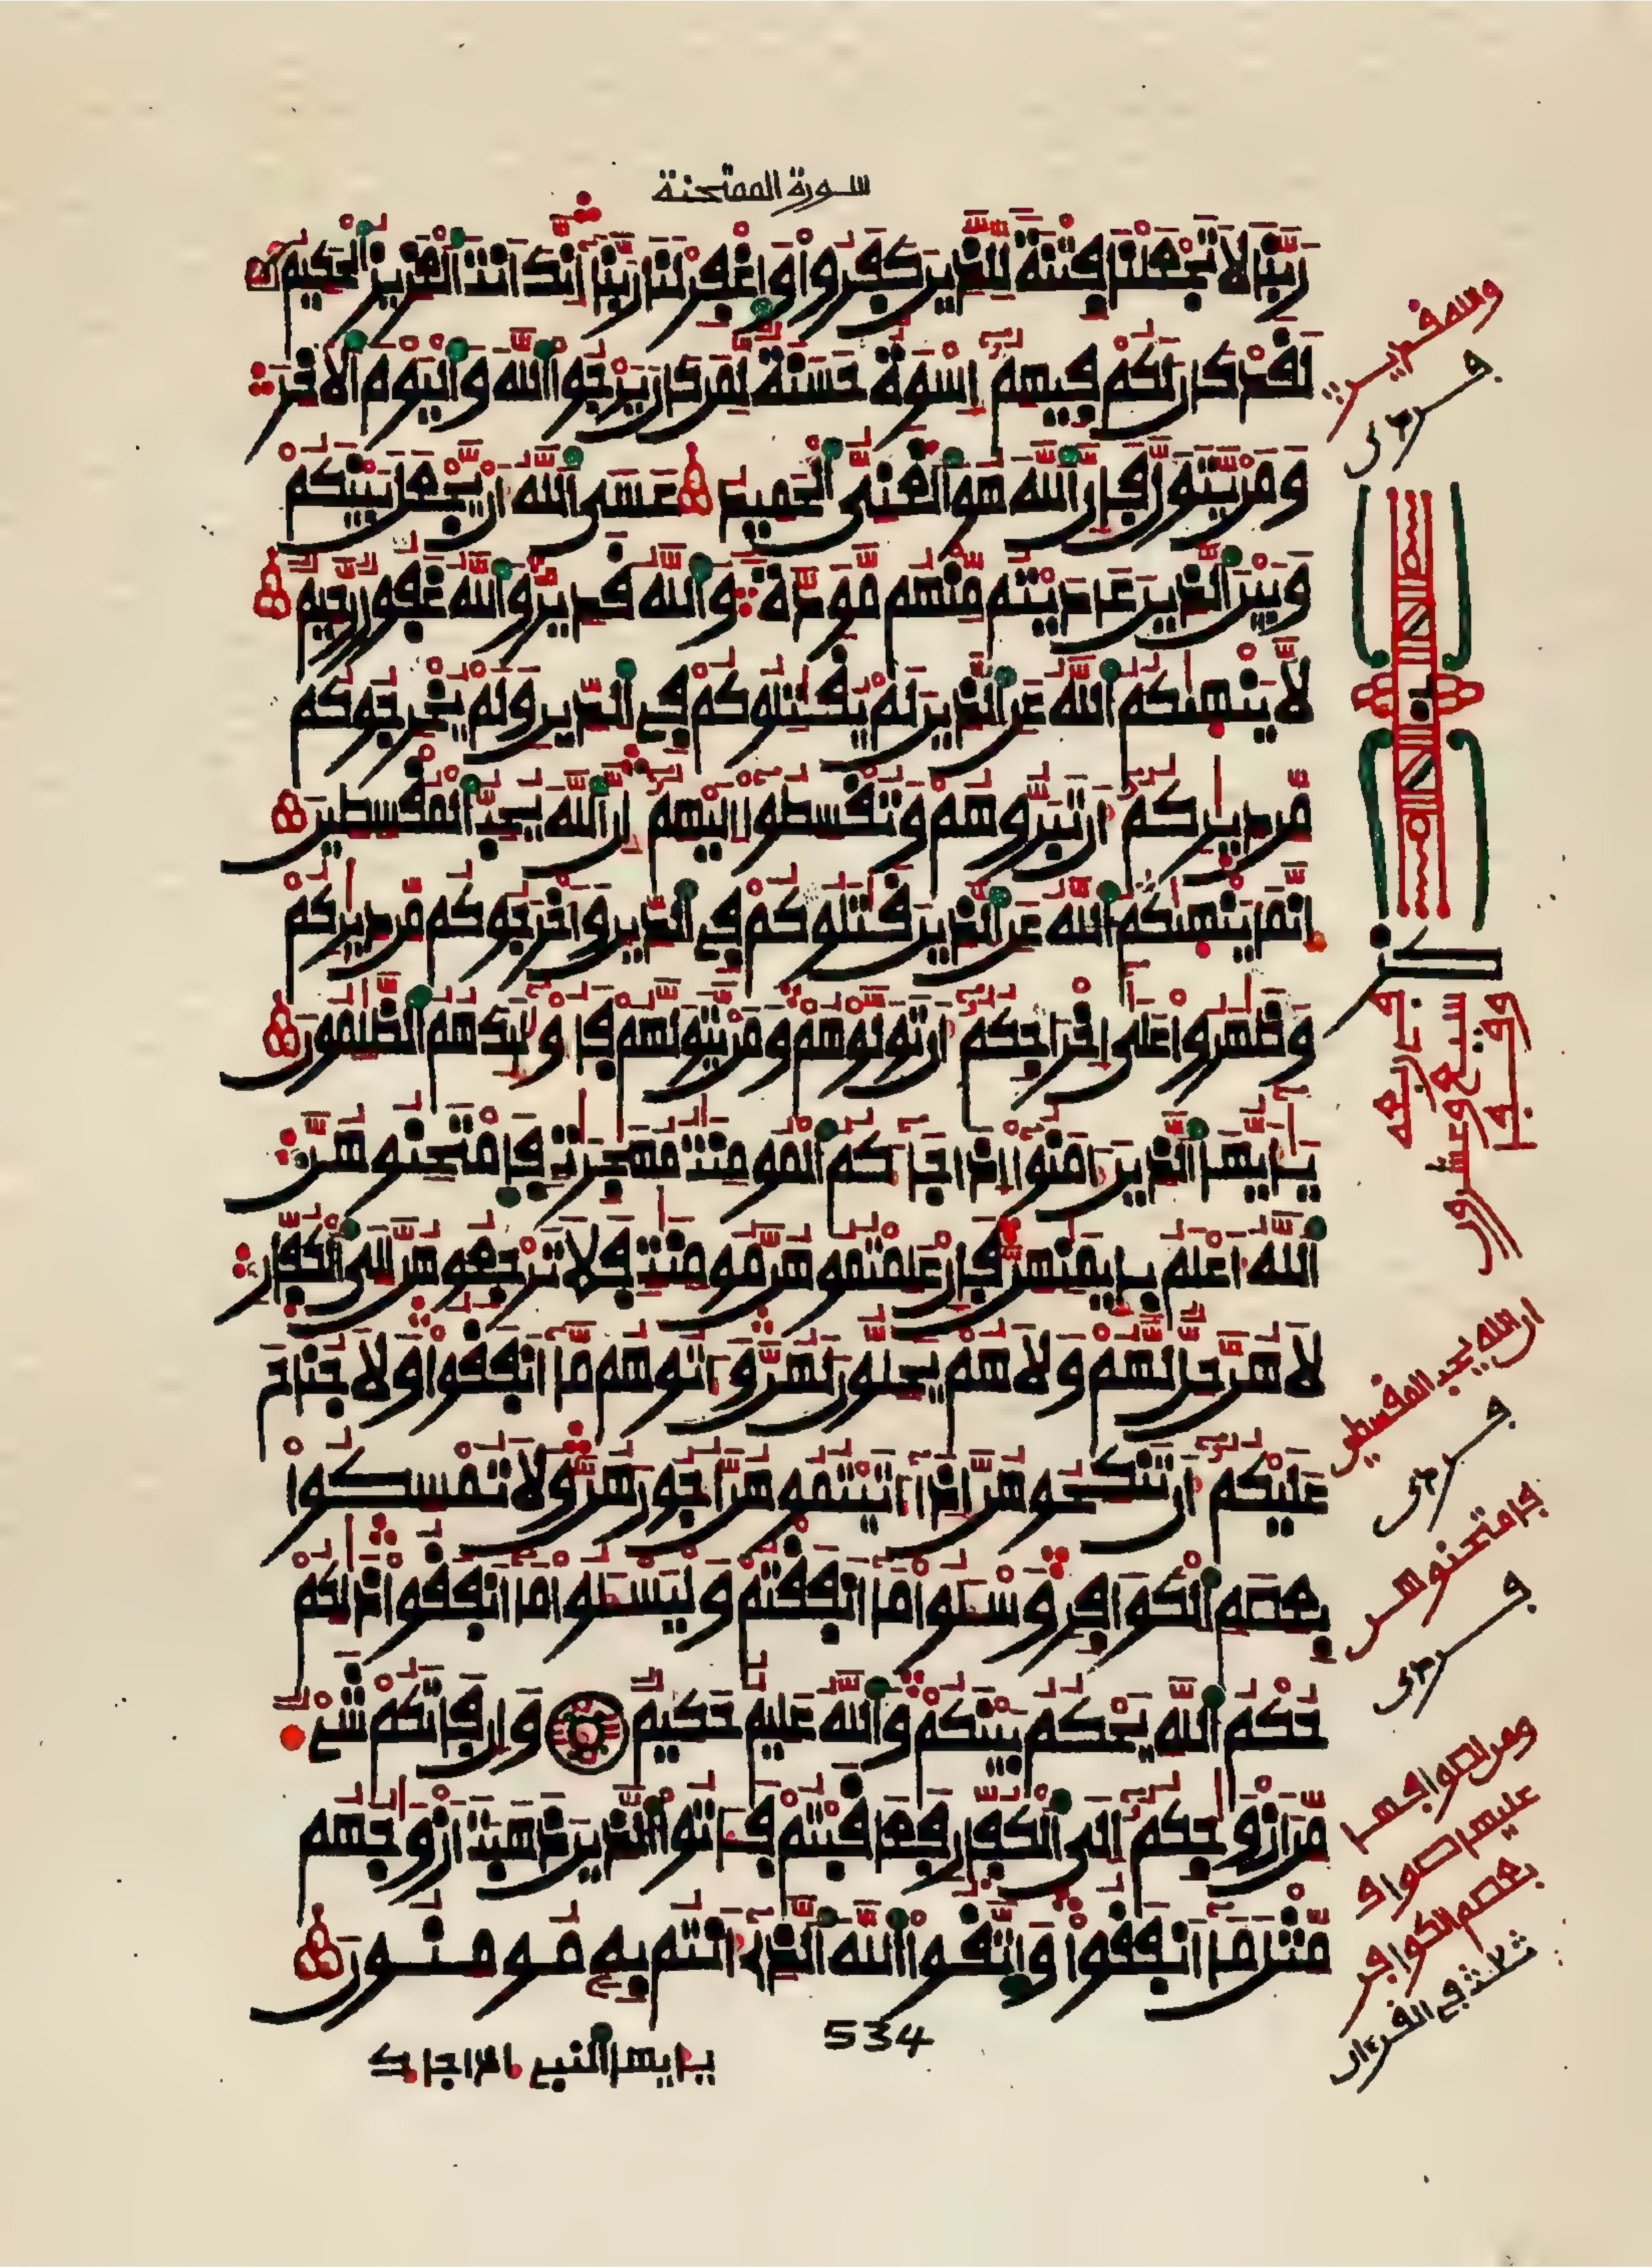 سورة الممتحنة
رَبَّنَا لَا تَجْعَلْنَا فِتْنَةً لِّلَّذِينَ كَفَرُوا وَاغْفِرْ لَنَا رَبَّنَا إِنَّكَ أَنتَ الْعَزِيزُ الْحَكِيمُ
لَقَدْ كَانَ لَكُمْ فِيهِمُ إِسْوَةٌ حَسَنَةٌ لِّمَن كَانَ يَرْجُوا اللَّهَ وَالْيَوْمَ الَاخِرَ
وَمَنْ يَّتَوَلَّ فَإِنَّ اللَّهَ هُوَ الْغَنِيُّ الْحَمِيدُ عَسَى اللَّهُ أَنْ يَّجْعَلَ بَيْنَكُمْ
وَبَيْنَ الَّذِينَ عَادَيْتُم مِّنْهُم مَّوَدَّةً وَاللَّهُ قَدِيرٌ وَاللَّهُ غَفُورٌ رَّحِيمٌ
لَّا يَنْهَىٰكُمُ اللَّهُ عَنِ الَّذِينَ لَمْ يُقَٰتِلُوكُمْ فِي الدِّينِ وَلَمْ يُخْرِجُوكُم
مِّن دِيَٰرِكُمُ أَن تَبَرُّوهُمْ وَتُقْسِطُوا إِلَيْهِمُ إِنَّ اللَّهَ يُحِبُّ الْمُقْسِطِينَ
إِنَّمَا يَنْهَىٰكُمُ اللَّهُ عَنِ الَّذِينَ قَٰتَلُوكُمْ فِي الدِّينِ وَأَخْرَجُوكُم مِّن دِيَٰرِكُمْ
وَظَٰهَرُوا عَلَىٰ إِخْرَاجِكُمُ أَن تَوَلَّوْهُمْ وَمَنْ يَّتَوَلَّهُمْ فَأُولَٰئِكَ هُمُ الظَّٰلِمُونَ
يَٰأَيُّهَا الَّذِينَ ءَامَنُوا إِذَا جَاءَكُمُ الْمُومِنَٰتُ مُهَٰجِرَٰتٍ فَامْتَحِنُوهُنَّ
اللَّهُ أَعْلَمُ بِإِيمَٰنِهِنَّ فَإِنْ عَلِمْتُمُوهُنَّ مُومِنَٰتٍ فَلَا تَرْجِعُوهُنَّ إِلَى الْكُفَّارِ
لَا هُنَّ حِلٌّ لَّهُمْ وَلَا هُمْ يَحِلُّونَ لَهُنَّ وَءَاتُوهُم مَّا أَنفَقُوا وَلَا جُنَاحَ
عَلَيْكُمُ أَن تَنكِحُوهُنَّ إِذَا ءَاتَيْتُمُوهُنَّ أُجُورَهُنَّ وَلَا تُمْسِكُوا
بِعِصَمِ الْكَوَافِرِ وَسْـَٔلُوا مَا أَنفَقْتُمْ وَلْيَسْـَٔلُوا مَا أَنفَقُوا ذَٰلِكُمْ
حُكْمُ اللَّهِ يَحْكُمُ بَيْنَكُمْ وَاللَّهُ عَلِيمٌ حَكِيمٌ وَإِن فَاتَكُمْ شَيْءٌ
مِّنَ أَزْوَٰجِكُمُ إِلَى الْكُفَّارِ فَعَاقَبْتُمْ فَـَٔاتُوا الَّذِينَ ذَهَبَتَ أَزْوَٰجُهُم
مِّثْلَ مَا أَنفَقُوا وَاتَّقُوا اللَّهَ الَّذِي أَنتُم بِهِ مُومِنُونَ
534
يأيها النبي إذا جاءك
والله قدير
ان الله يحب المقسطين
فامتحنوهن
بعصم الكوافر
ثلث في القرءان